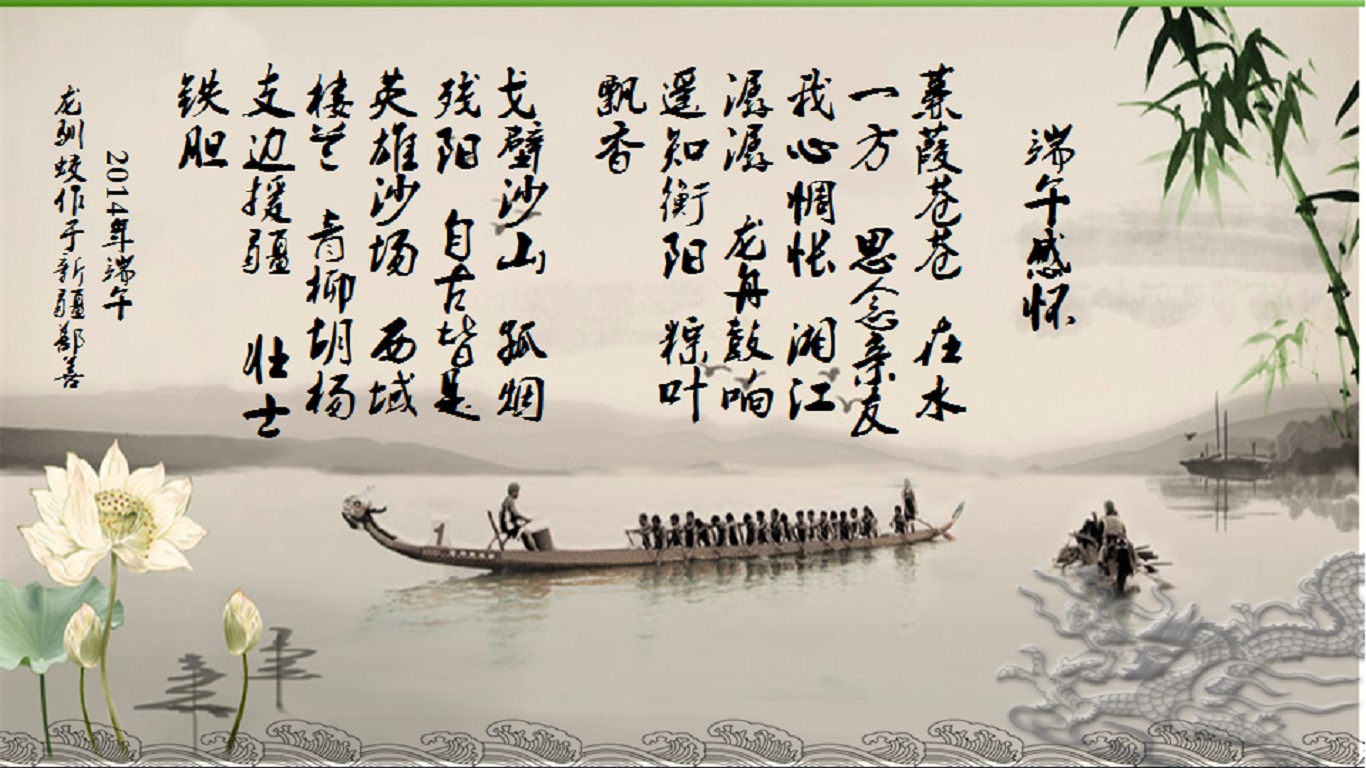 端午感怀
蒹葭苍苍 在水
一方 思念亲友
我心惆怅 湘江
潺潺 龙舟鼓响
遥知衡阳 粽叶
飘香
戈壁沙山 孤烟
残阳 自古皆是
英雄沙场 西域
楼兰 青柳胡杨
支边援疆 壮士
铁胆
2014年端午
龙驯蛟作于新疆鄯善